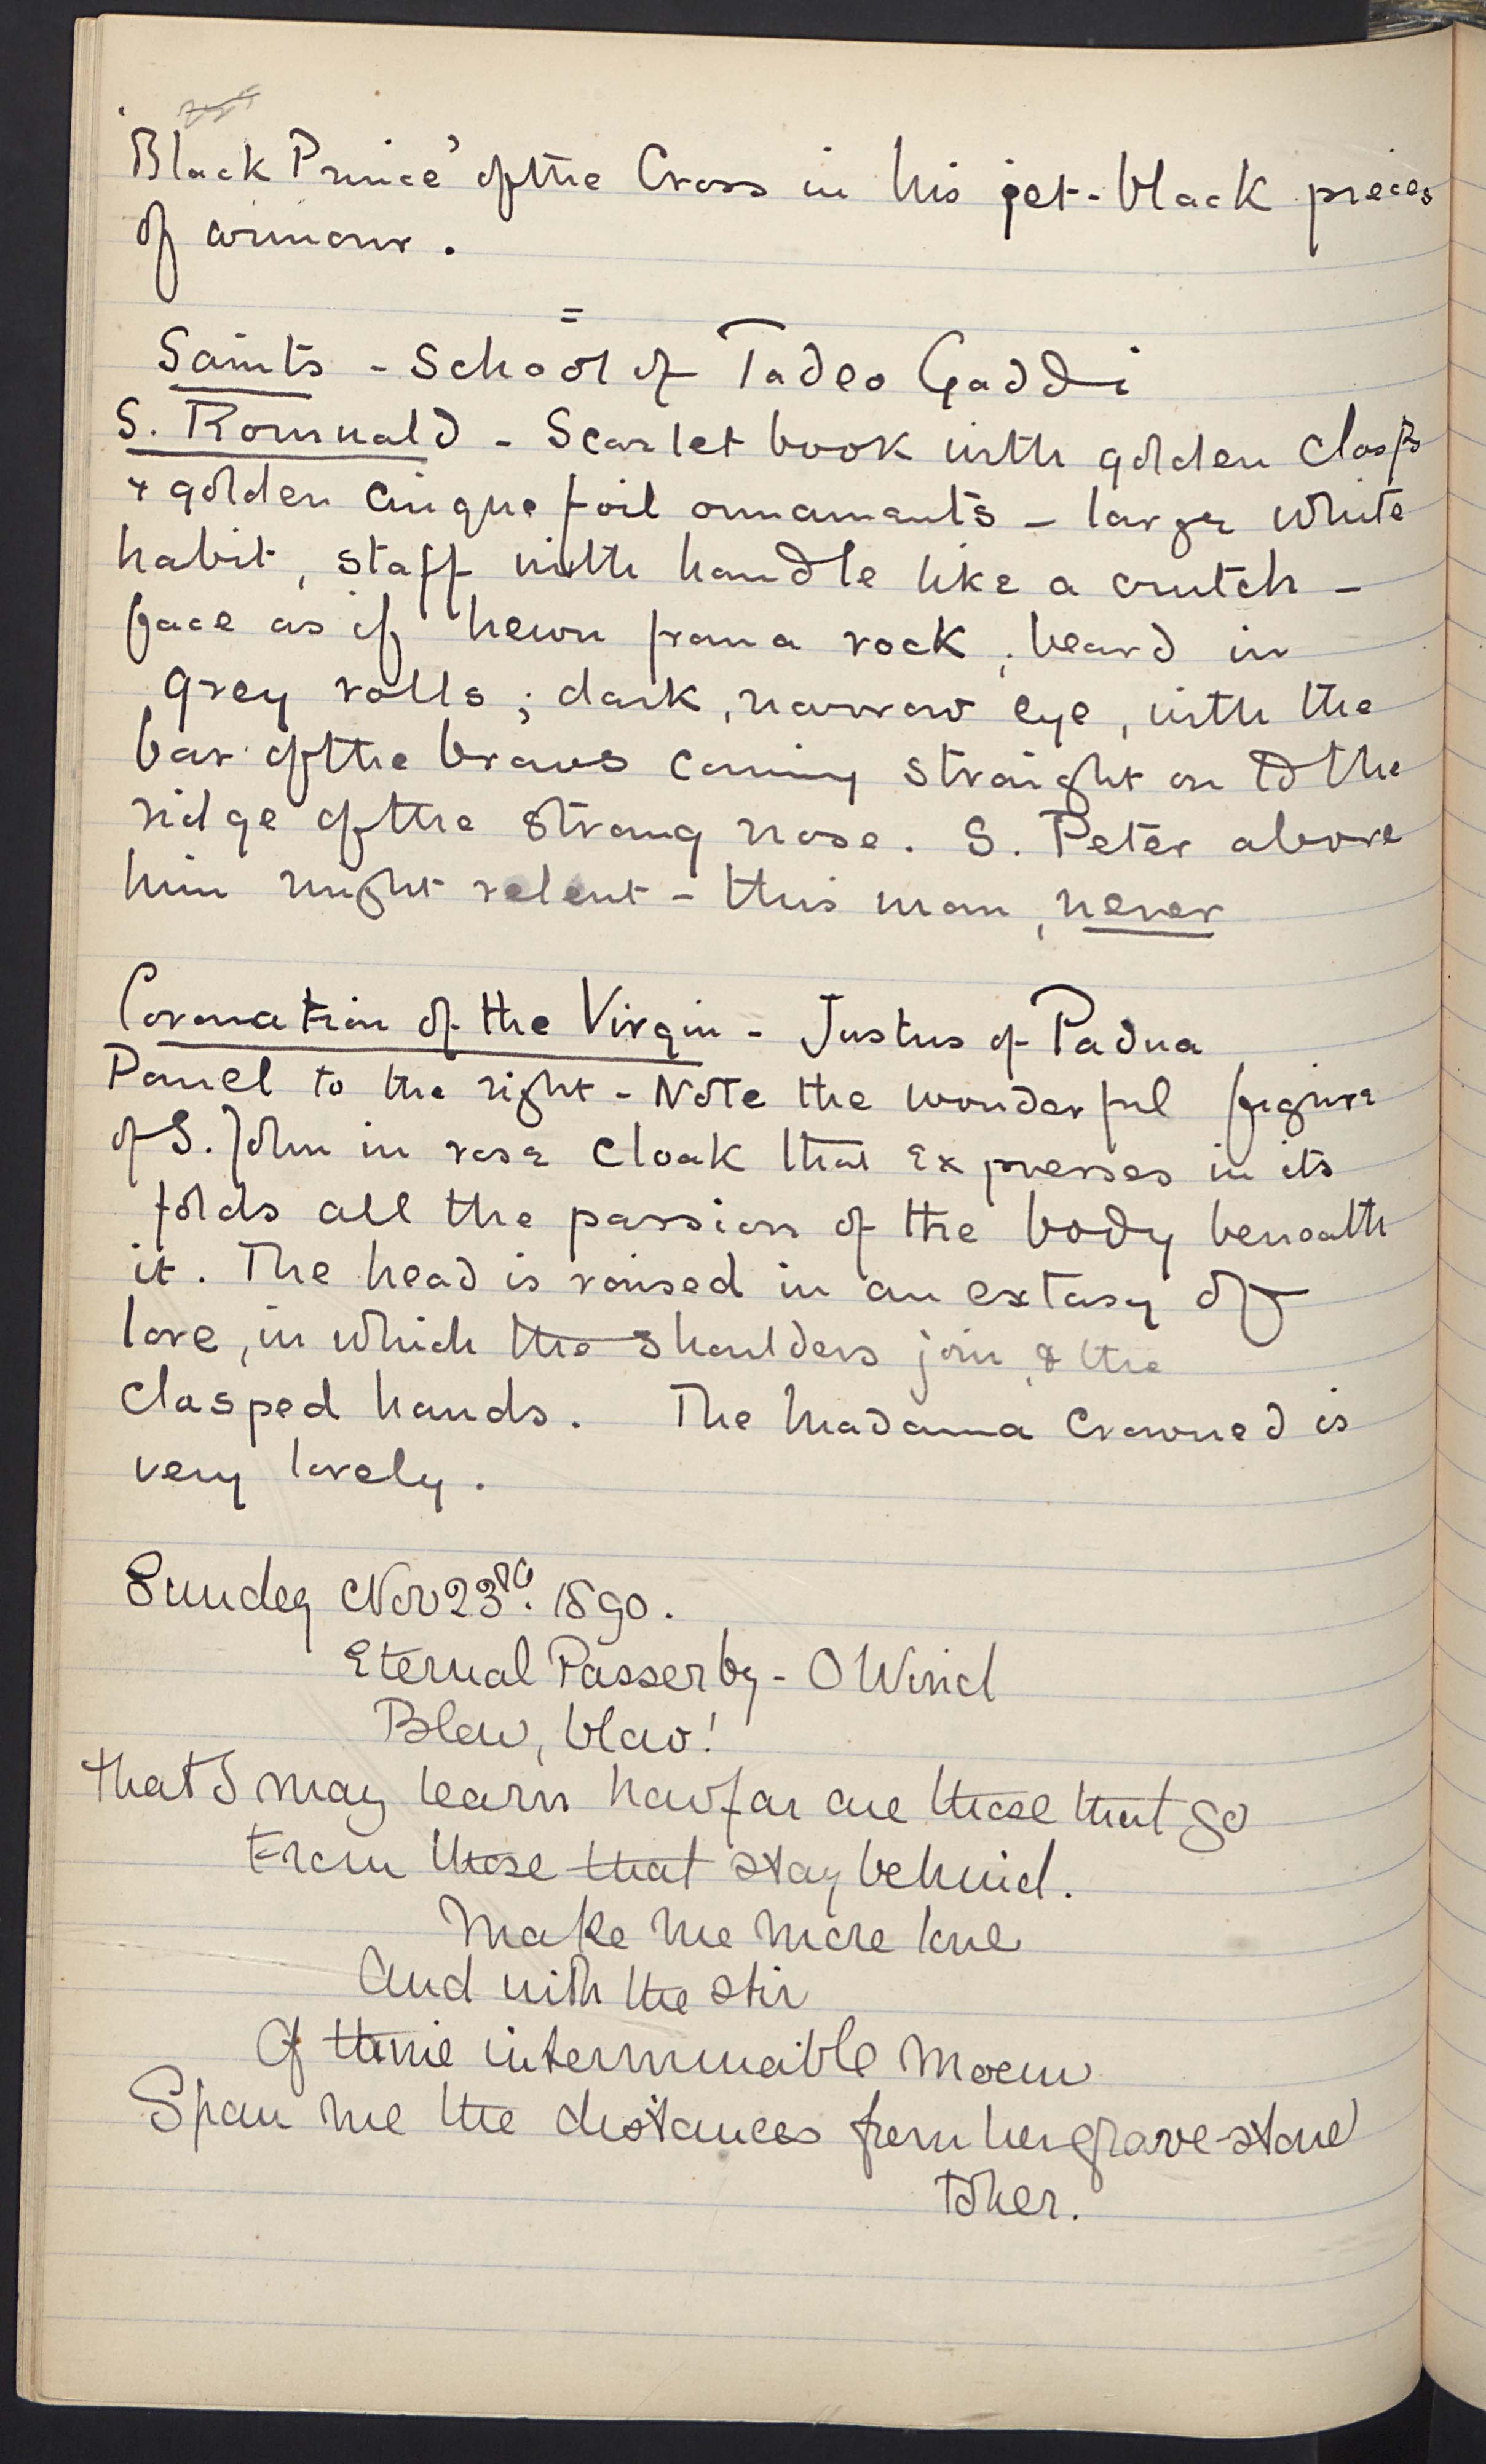 'Black Prince' of the Cross in his jet-black pieces
of armour.
=
Saints - School of Tadeo Gaddi
S. Romuald - Scarlet book with golden clasps
+ golden cinque foil ornaments - large white
habit, staff with handle like a crutch -
face as if hewn from a rock, beard in
grey rolls; dark, narrow eye, with the
bar of the brows coming straight on to the
ridge of the strong nose. S. Peter above
him might relent - this man, never
Coronation of the Virgin - Justus of Padua
Panel to the right - Note the wonderful figure
of S. John in rose cloak that expresses in its
folds all the passion of the body beneath
it. The head is raised in an extasy of
love, in which the shoulders join, & the
clasped hands. The Madonna Crowned is
very lovely.
Sunday Nov 23rd. 1890.
Eternal Passer by - O Wind
Blow, blow!
that I may learn how far are those that go
From those that stay behind.
Make me more lone
And with the stir
Of thine interminable moan
Span me the distances from her grave-stone
to her.